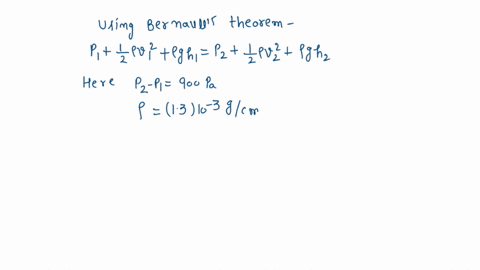 Using Bernaulli's theorem -
P₁ + ½ρv₁² + ρgh₁ = P₂ + ½ρv₂² + ρgh₂
Here P₂-P₁ = 900 Pa
ρ = (1.3)10⁻³ g/cm